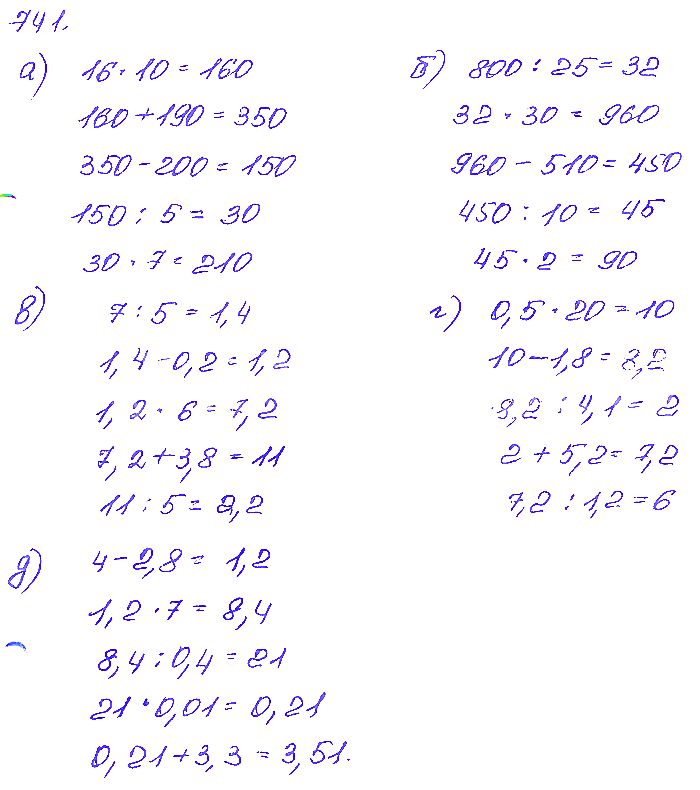 741.
а) 16 · 10 = 160
160 + 190 = 350
350 - 200 = 150
150 : 5 = 30
30 · 7 = 210
б) 800 : 25 = 32
32 · 30 = 960
960 - 510 = 450
450 : 10 = 45
45 · 2 = 90
в) 7 : 5 = 1,4
1,4 - 0,2 = 1,2
1,2 · 6 = 7,2
7,2 + 3,8 = 11
11 : 5 = 2,2
г) 0,5 · 20 = 10
10 - 1,8 = 8,2
8,2 : 4,1 = 2
2 + 5,2 = 7,2
7,2 : 1,2 = 6
д) 4 - 2,8 = 1,2
1,2 · 7 = 8,4
8,4 : 0,4 = 21
21 · 0,01 = 0,21
0,21 + 3,3 = 3,51.